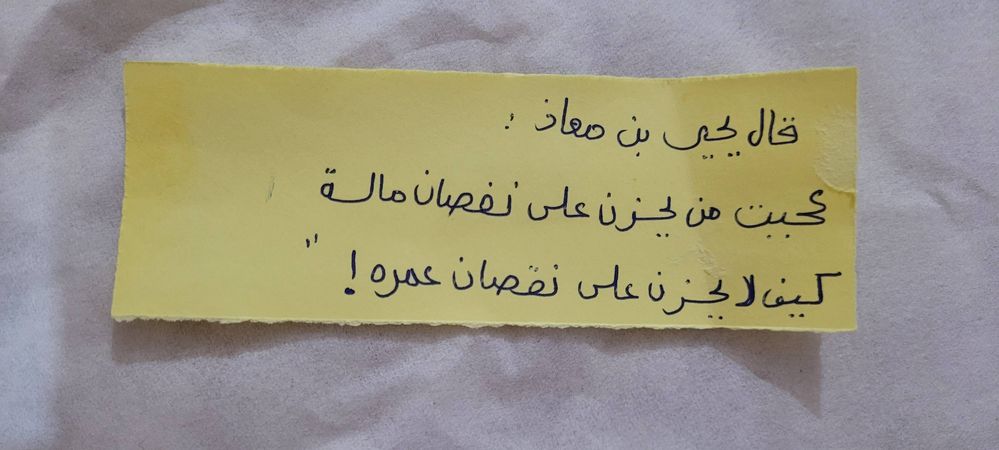 قال يحيى بن معاذ :
عجبت من يحزن على نقصان مالة
كيف لا يحزن على نقصان عمره ! "